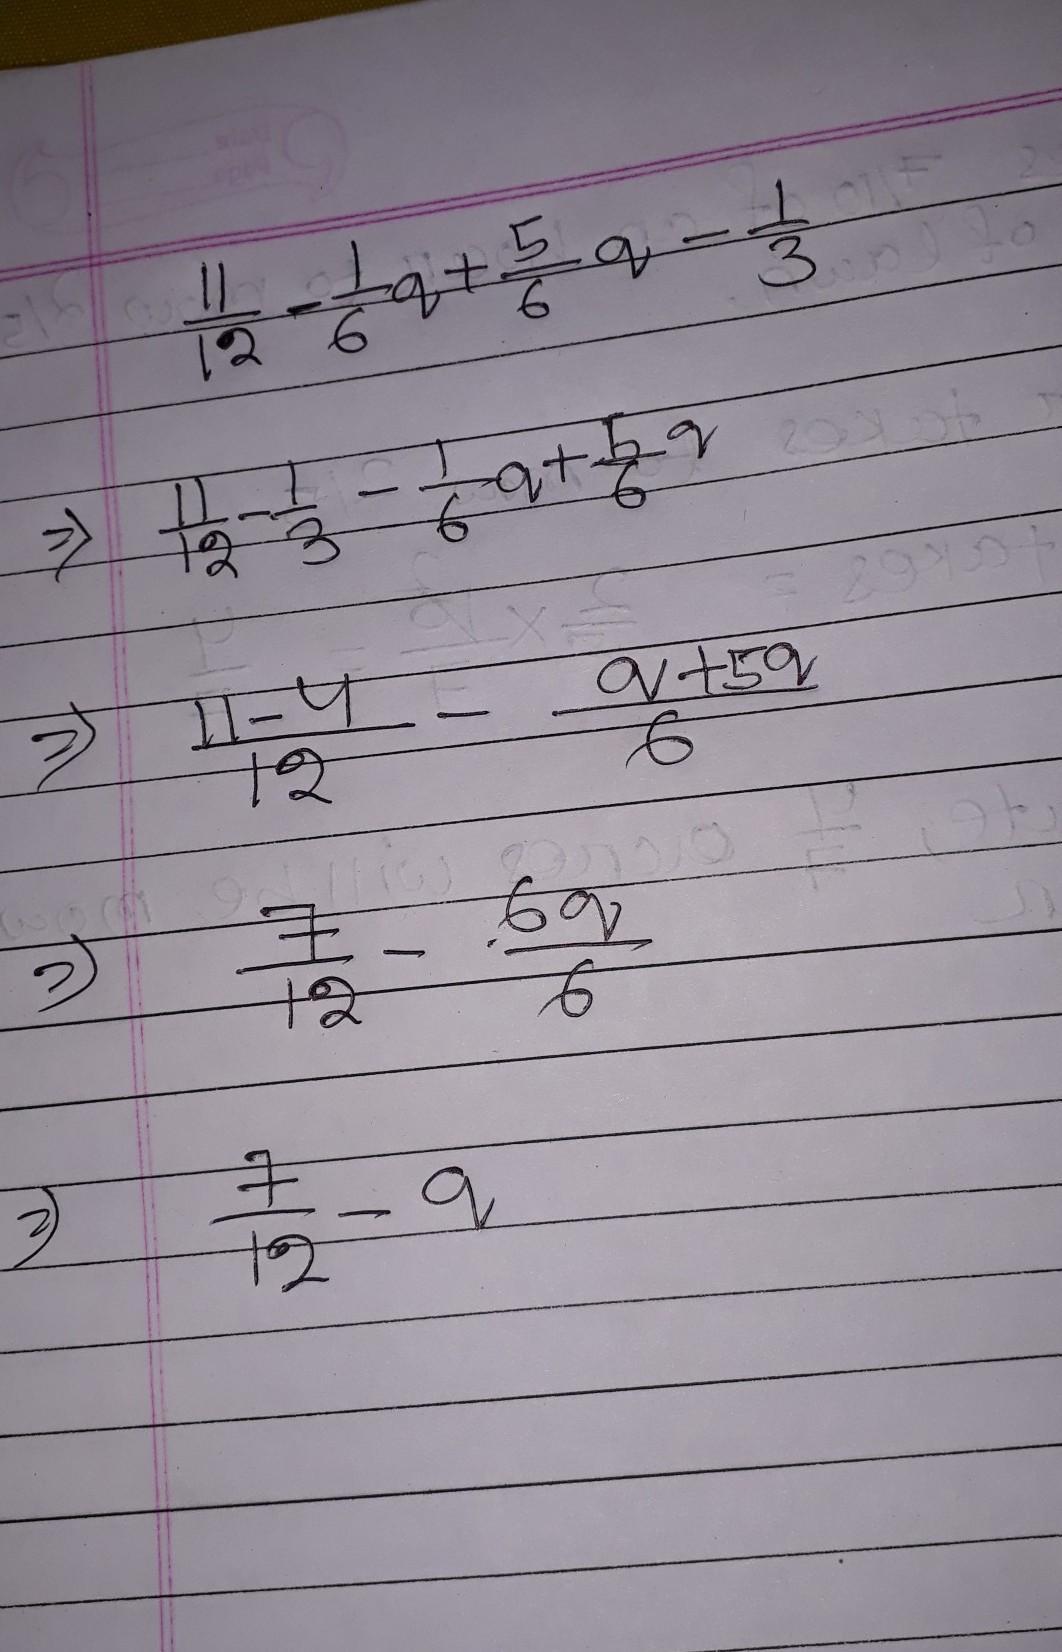 11/12 - 1/6 q + 5/6 q - 1/3
⇒ 11/12 - 1/3 - 1/6 q + 5/6 q
⇒ 11-4/12 - q+5q/6
⇒ 7/12 - 6q/6
⇒ 7/12 - q